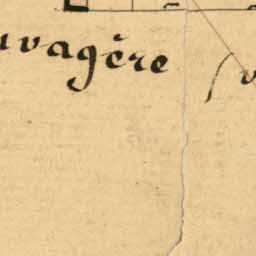 uvagère